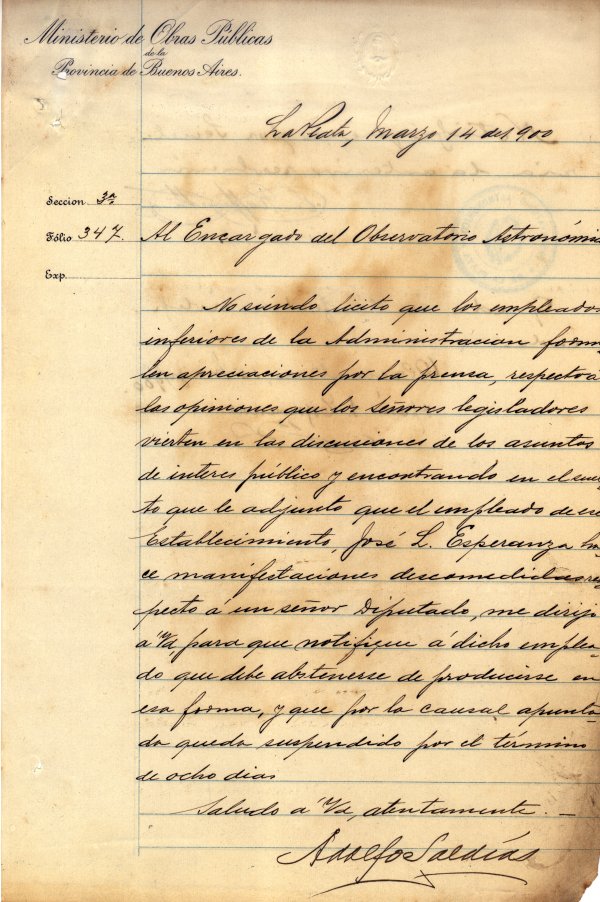 Ministerio de Obras Públicas
de la
Provincia de Buenos Aires.
La Plata, Marzo 14 de 1900
Seccion 3ª
Fólio 347. Al Encargado del Observatorio Astronómic
Exp.
No siendo licito que los empleados
inferiores de la Administracion formu
len apreciaciones por la prensa, respecto á
las opiniones que los señores legisladores
vierten en las discusiones de los asuntos
de interes público y encontrando en el suel
to que le adjunto que el empleado de ese
Establecimiento, José L. Esperanza ha
ce manifestaciones descomedidas res
pecto á un señor Diputado, me dirijo
a Vd, para que notifique á dicho emplea-
do que debe abstenerse de producirse en
esa forma, y que por la causal apunta-
da queda suspendido por el término
de ocho dias
Saludo a Vd, atentamente. —
Adolfo Saldías